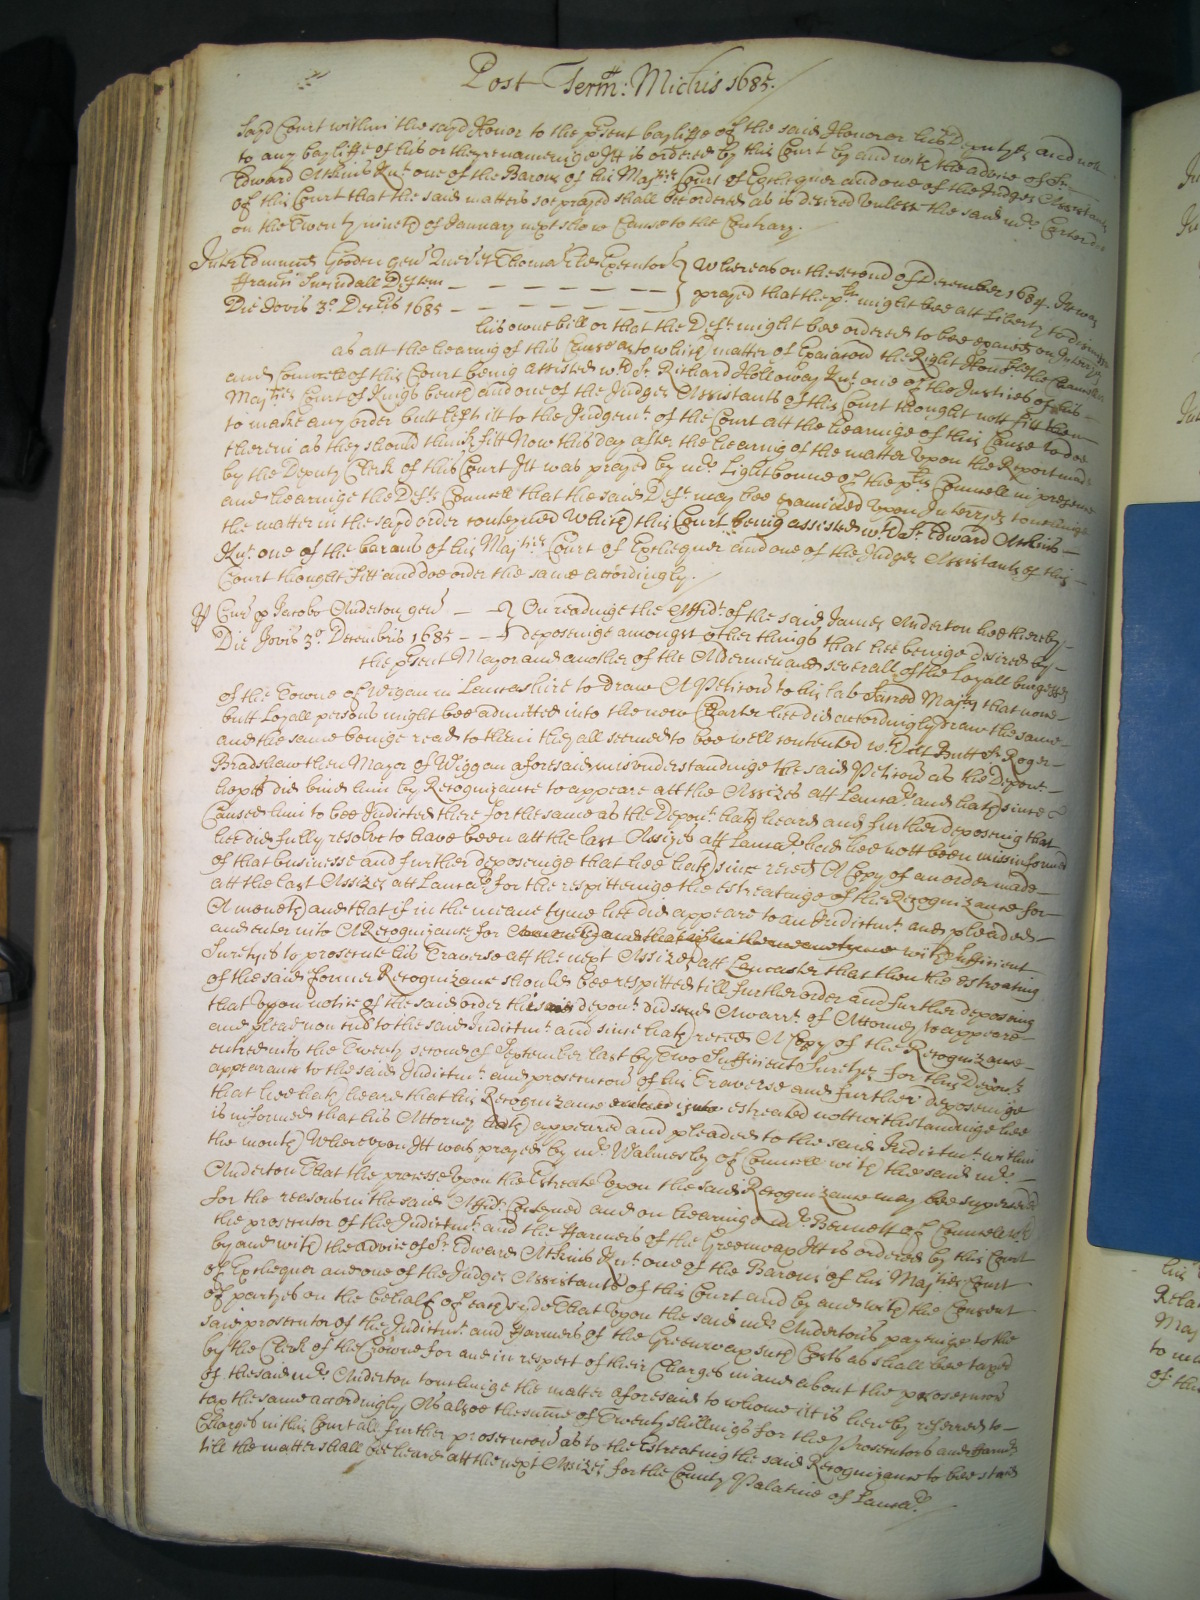 Post Term: Michis 1685.
sayd Court within the sayd Honor to the p'sent bayliffe of the said Honor or his Deputyes and not
to any bayliffe of his or theyre nameinge Itt is ordered by this Court by and with the advice of Sr
Edward Atkins Knt one of the Barons of his Majties Court of Exchequer and one of the Judges Assistants
of this Court that the said matters soe prayed shall bee ordered as is desired unlesse the said mr
on the Twenty nineth of January next shew Cause to the Contrary.
Inter Edmund Gooden gen Quer et Executor } Whereas on the second of December 1684. Itt was
Deften } prayed that the plt might bee att Liberty to dismisse
Die Jovis 3o Decbis 1685
his owne bill or that the Deft might bee ordered to bee examd on Interryes
as att the hearing of this Cause as to which matter of Examacon the Right Honoble the Chancellor
and Councell of this Court being assisted wth Sr Richard Holloway Knt one of the Justices of his
Majties Court of Kings bench and one of the Judges Assistants of this Court thought nott fitt then
to make any order butt left itt to the Judgemt of the Court att the hearinge of this Cause to doe
therein as they should thinke fitt Now this day after the hearing of the matter upon the Report made
by the Deputy Clerk of this Court Itt was prayed by mr Lightbourne of the plts Councell in presence
and hearinge the Defts Councell that the said Deft may bee examined upon Interryes touchinge
the matter in the sayd order conteyned Which this Court being assisted wth Sr Edward Atkins
Knt one of the barons of his Majties Court of Exchequer and one of the Judges Assistants of this
Court thought fitt and doe order the same accordingly.
p Jacobo Anderton gen } On readinge the Affidt of the said James Anderton hee thereby
Die Jovis 3o Decembris 1685 } deposeinge amongst other things that hee beinge desired by
the p'sent Mayor and another of the Aldermen and severall of the Loyall burgesses
of the Towne of Wigan in Lancashire to draw A Peticon to his late Sacred Majty that none
butt Loyall persons might bee admitted into the new Charter hee did accordingly draw the same
and the same beinge read to them they all seemed to bee well contented wth itt Butt Sr Roger
Bradshaw then Mayor of Wiggan aforesaid misunderstandinge the said Peticon as the Depont
hopes did bind him by Recognizance to appeare att the Assizes att Lancar and hath since
Caused him to bee Indicted there for the same as the Depont hath heard and further deposeing that
hee did fully resolve to have been att the last Assizes att Lancar had hee nott been missinformed
of that businesse and further deposeinge that hee hath since reced A Copy of an order made
att the last Assizes att Lancar for the respitteinge the estreatinge of the Recognizance for
A moneth and that if in the meane tyme hee did appeare to an Indictmt and pleaded
and enter into A Recognizance for A moneth and that if in the meane tyme with sufficient
Suretyes to prosecute his Traverse att the next Assizes att Lancaster that then the estreating
of the said former Recognizance should bee respitted till further order and further deposeing
that upon notice of the said order this said depont did send A warrt of Attorney to appeare
and plead non cul to the said Indictmt and since hath reced A Copy of the Recognizance
entred into the Twenty second of September last by two Sufficient Suretyes for this Deponts
appearance to the said Indictmt and prosecucon of his Traverse and further deposeinge
that hee hath heard that his Recognizance entred into estreated nottwithstandinge hee
is informed that his Attorney hath appeared and pleaded to the said Indictmt within
the month Whereupon Itt was prayed by mr Walmesley of Councell with the said mr
Anderton That the processe upon the Estreate upon the said Recognizance may bee superseded
for the reasons in the said Affidt Conteyned and on hearinge mr Bennett of Councell wth
the prosecutor of the Indictmt and the Farmers of the Greenwax Itt is ordered by this Court
by and with the advice of Sr Edward Atkins Knt one of the Barons of his Majties Court
of Exchequer and one of the Judges Assistants of this Court and by and with the Consent
of partyes on the behalf of each syde That upon the said mr Andertons payeinge to the
said prosecutor of the Indictmt and Farmers of the Greenwax such Costs as shall bee taxed
by the Clerk of the Crowne for and in respect of their Charges in and about the prosecucon
of the said mr Anderton touchinge the matter aforesaid to whome itt is hereby referred to
tax the same accordingly As alsoe the sume of Twenty shillings for the Prosecutors and Farmers
Charges in this Court all further prosecucon as to the Estreating the said Recognizance to bee stayd
till the matter shall bee heard att the next Assizes for the County Palatine of Lancar.